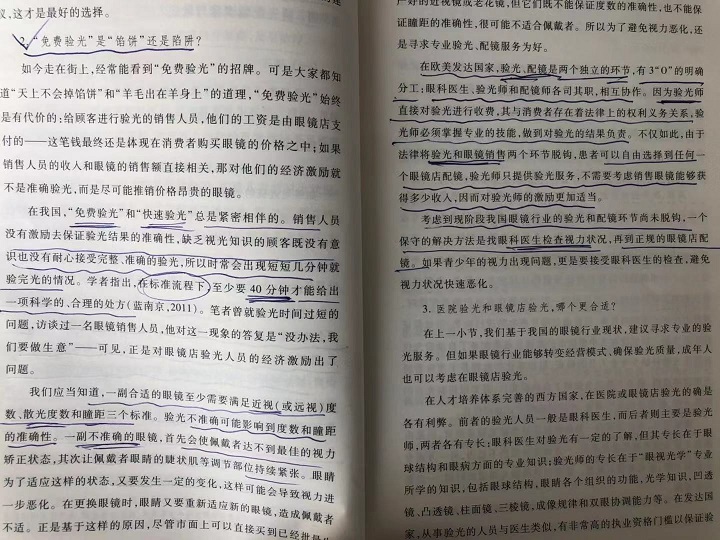 议,这才是最好的选择。
2.“免费验光”是“馅饼”还是陷阱?
如今走在街上,经常能看到“免费验光”的招牌。可是大家都知
道“天上不会掉馅饼”和“羊毛出在羊身上”的道理,“免费验光”始终
是有代价的:给顾客进行验光的销售人员,他们的工资是由眼镜店支
付的——这笔钱最终还是体现在消费者购买眼镜的价格之中;如果
销售人员的收入和眼镜的销售额直接相关,那对他们的经济激励就
不是准确验光,而是尽可能推销价格昂贵的眼镜。
在我国,“免费验光”和“快速验光”总是紧密相伴的。销售人员
没有激励去保证验光结果的准确性,缺乏视光知识的顾客既没有意
识也没有耐心接受完整、准确的验光,所以时常会出现短短几分钟就
验完光的情况。学者指出,在标准流程下,至少要 40 分钟才能给出
一项科学的、合理的处方(蓝南京,2011)。笔者曾就验光时间过短的
问题,访谈过一名眼镜销售人员,他对这一现象的答复是“没办法,我
们要做生意”——可见,正是对眼镜店验光人员的经济激励出了
问题。
我们应当知道,一副合适的眼镜至少需要满足近视(或远视)度
数、散光度数和瞳距三个标准。验光不准确可能影响到度数和瞳距
的准确性。一副不准确的眼镜,首先会使佩戴者达不到最佳的视力
矫正状态,其次让佩戴者眼睛的睫状肌等调节部位持续紧张。眼睛
为了适应这样的状态,又要发生一定的变化,这样可能会导致视力进
一步恶化。在更换眼镜时,眼睛又要重新适应新的眼镜,造成佩戴者
不适。正是基于这样的原因,尽管市面上可以直接买到已经批量
的近视镜或老花镜,但它们既不能保证度数的准确性,也不能保
证瞳距的准确性,很可能不适合佩戴者。所以为了避免视力恶化,还
是寻求专业验光、配镜服务为好。
在欧美发达国家,验光、配镜是两个独立的环节,有 3“O”的明确
分工:眼科医生、验光师和配镜师各司其职,相互协作。因为验光师
直接对验光进行收费,其与消费者存在着法律上的权利义务关系,验
光师必须掌握专业的技能,做到对验光的结果负责。不仅如此,由于
法律将验光和眼镜销售两个环节脱钩,患者可以自由选择到任何一
个眼镜店配镜,验光师只提供验光服务,不需要考虑销售眼镜能够获
得多少收入,因而对验光师的激励更加适当。
考虑到现阶段我国眼镜行业的验光和配镜环节尚未脱钩,一个
保守的解决方法是找眼科医生检查视力状况,再到正规的眼镜店配
镜。如果青少年的视力出现问题,更是要接受眼科医生的检查,避免
视力状况快速恶化。
3. 医院验光和眼镜店验光,哪个更合适?
在上一小节,我们基于我国的眼镜行业现状,建议寻求专业的验
光服务。但如果眼镜行业能够转变经营模式、确保验光质量,成年人
也可以考虑在眼镜店验光。
在人才培养体系完善的西方国家,在医院或眼镜店验光的确是
各有利弊。前者的验光人员一般是眼科医生,而后者则主要是验光
师,两者各有专长:眼科医生对验光有一定的了解,但其专长在于眼
球结构和眼病方面的专业知识;验光师的专长在于“眼视光学”专业
所学的知识,包括眼球结构,眼睛各个组织的功能,光学知识,凹透
镜、凸透镜、柱面镜、三棱镜,成像规律和双眼协调能力等。在发达国
家,从事验光的人员与医生类似,有非常高的执业资格门槛以保证验